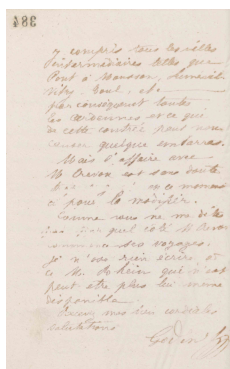 384
y compris tous les villes
intermédiaires telles que
Pont à Mousson, Lunéville
Vitry, Toul, etc
par conséquent toutes
les Ardennes et ce qui
de cette contrée peut nous
causer quelque embarras.
Mais l'affaire avec
M. est sans doute
en ce moment
pour la modifier.
Comme vous ne me dites
pas par quel côté M.
commence ses voyages,
je n'ose rien écrire à
ce M. Rhein qui n'est
peut être plus lui même
disponible.
Recevez mes bien cordiales
salutations
Godin